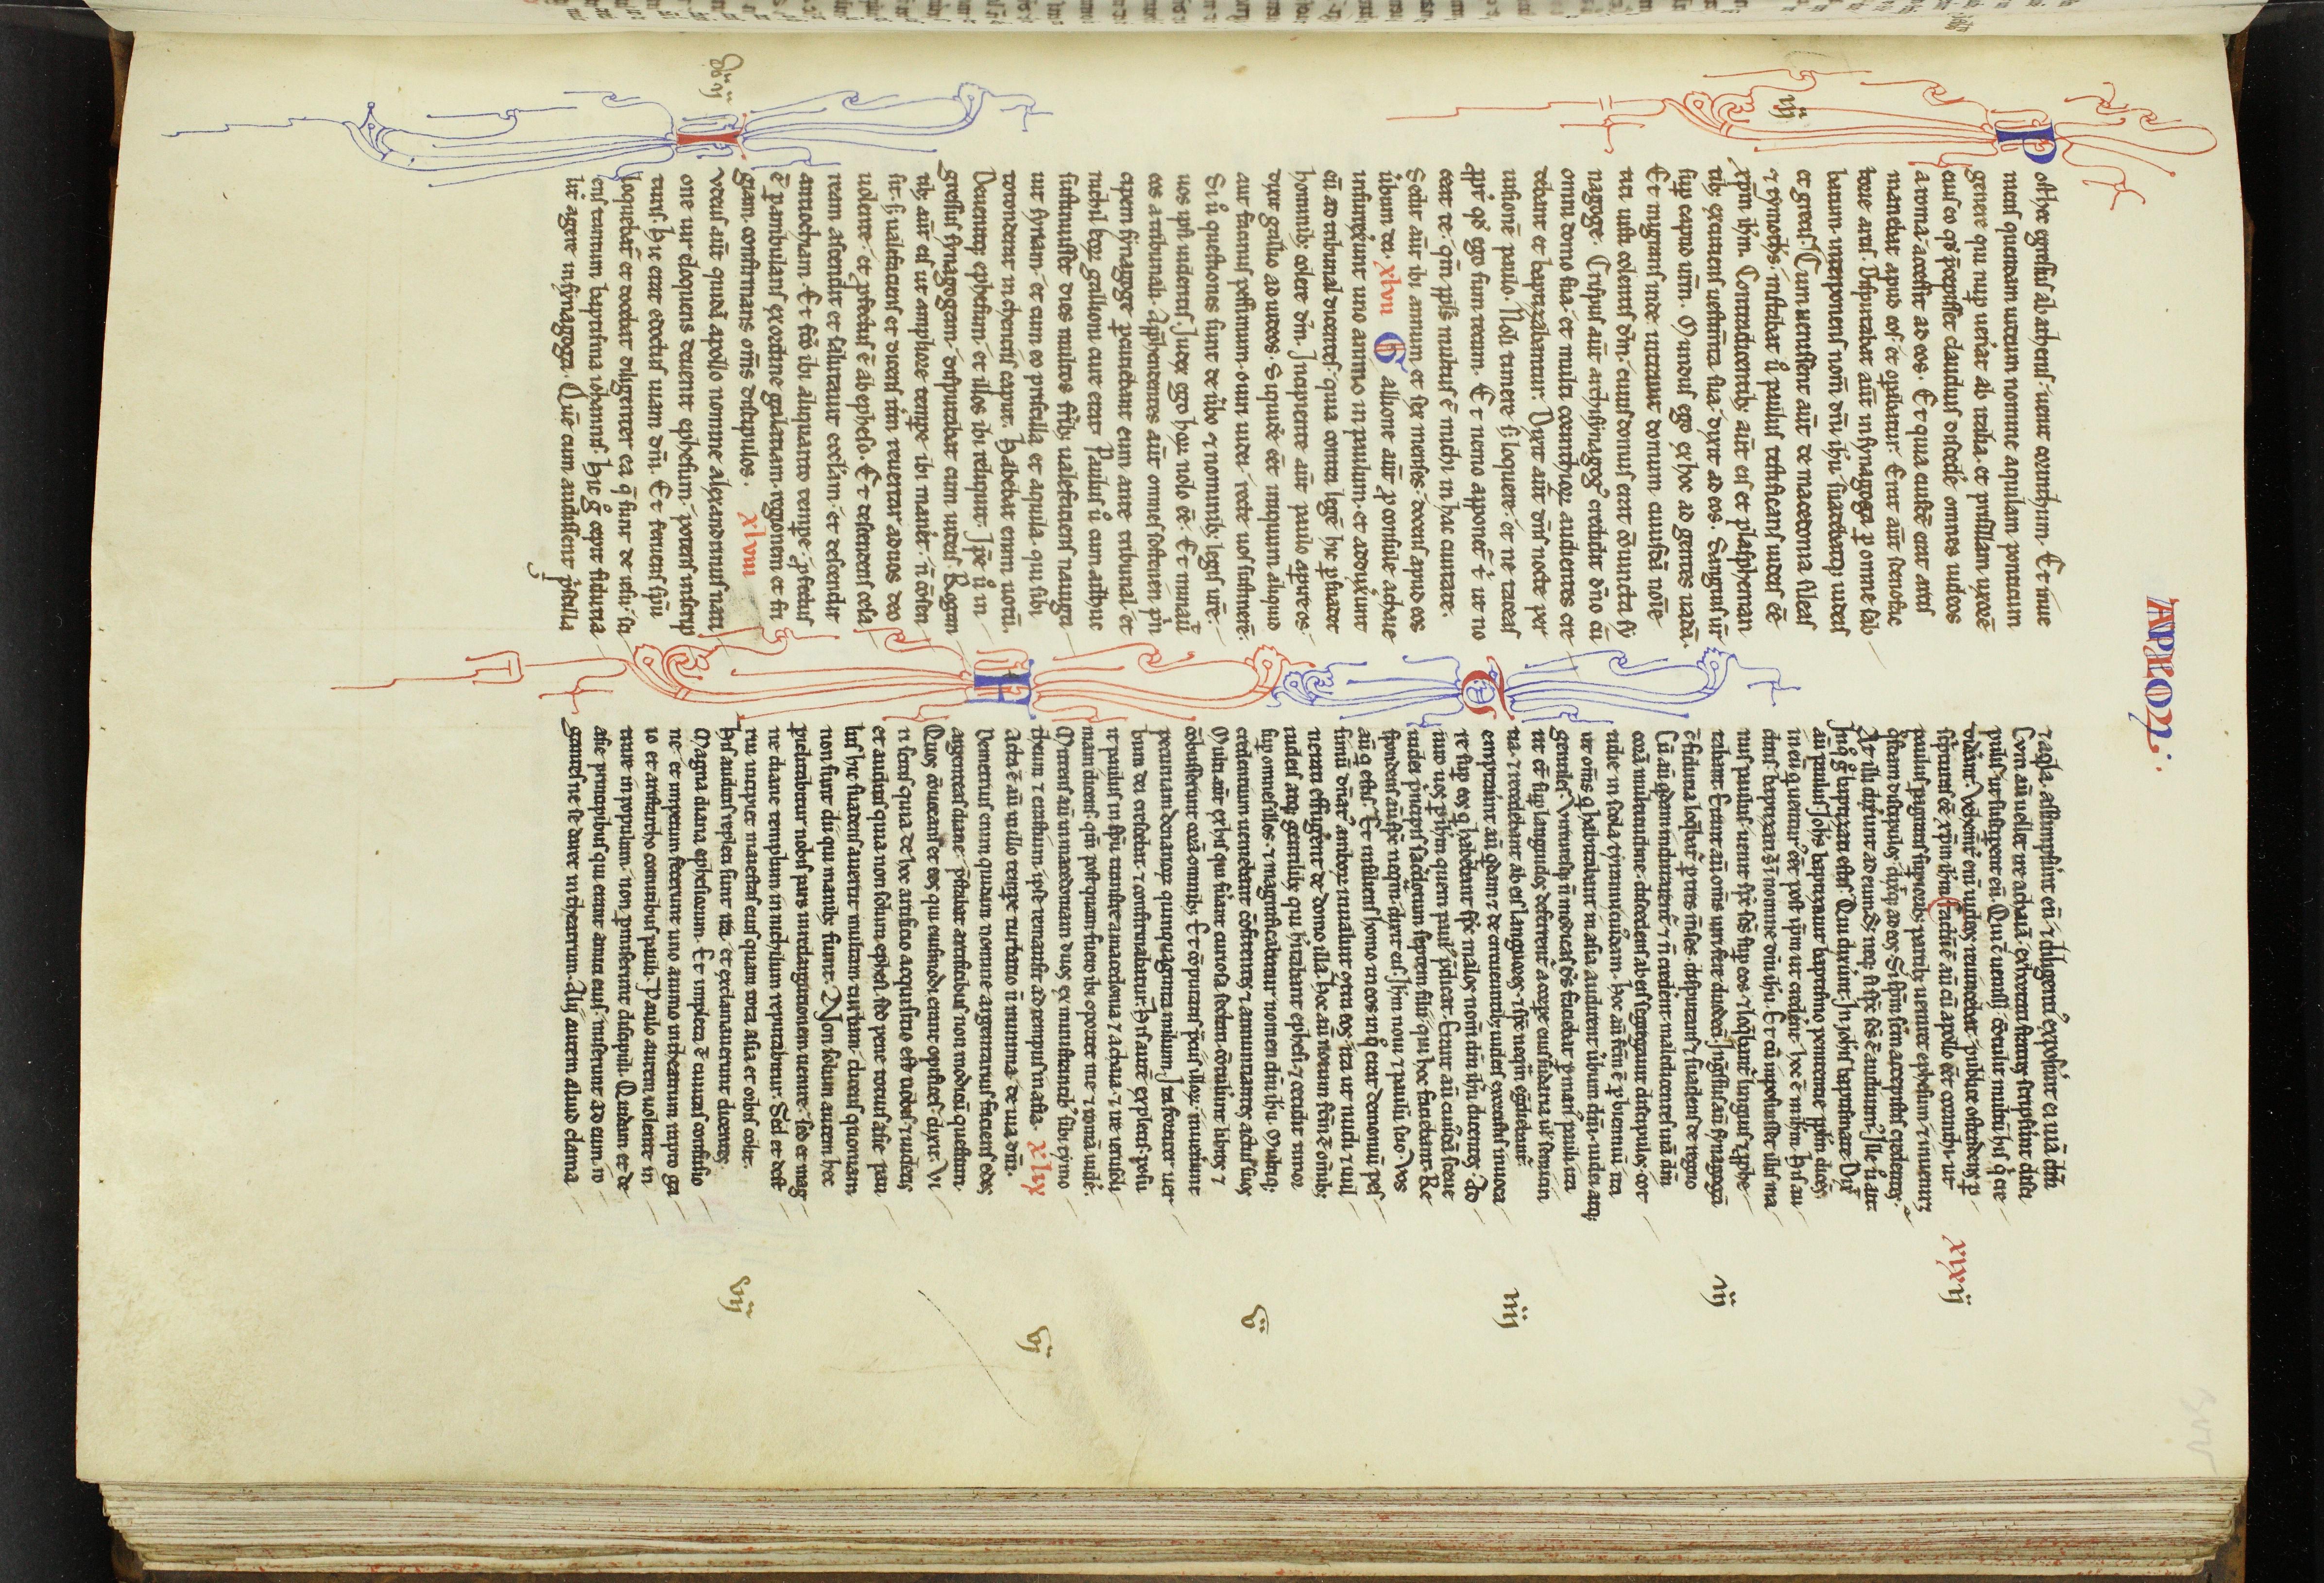 APLOꝜ.
Post hec egressus ab athenis. uenit corinthum. Et inue
niens quendam iudeum nomine aquilam ponticum
genere qui nup uen̄at ab italia. et priscillam uxorē
eius eo qd̓ p̄cepisset claudius discedē omnes iudeos
a roma. accessit ad eos. Et quia eiusdē erat artis
manebat apud eos et opabatur. Erat aūt scenofac
torie artis. Disputabat aūt in synagoga p omne sab
batum. interponens nom̄ dn̄i ihū. suadebatqꝫ iudeis
et grecis. Cum uenissent aūt de macedonia sileas
⁊ tymoths̓. instabat ů paulus testificans iudeis eē
xp̄m ihm̄. Contradicentibꝫ aūt eis et blasphemanti
tibꝫ excutiens uestim̄ta sua. dixit ad eos. Sanguis ur̄
sup capud urm̄. Mundus ego ex hoc ad gentes uadā.
Et migrans inde. intrauit domum cuiusdā noīe
titi iusti colentis dm̄. cuius domus erat cōiuncta sy
nagoge. Crispus aūt archisynagogꝰ credidit dn̄o cū
omni domo sua. et multi corinthioꝝ audientes cre
debant et baptizabantur. Dixit aūt dn̄s nocte per
uisionē paulo. Noli timere sꝫ loquere et ne taceas
ppt̓ qd̓ ego sum tecum. Et nemo apponet̄ t̓ ut no
ceat te. qm̄ ppl̄s multus ē michi in hac ciuitate.
Sedit aūt ibi annum et sex menses. docens apud eos
ůbum dei. xlvii Gallione aūt p̱ consule achaie
insurrexerunt uno animo in paulum. et adduxerunt
eū ad tribunal dicentes. quia contra legē hic p̱suadet
hominibꝫ colere dm̄. Incipiente aūt paulo aperire os.
dixit gallio ad iudeos. Siquidē eēt iniquum aliquid
aut facinus pessimum. o uiri iudei. recte uos sustinerē.
Si ů questiones sunt de ůbo ⁊ nominibꝫ legis ur̄e.
uos ipsi uideritis. Iudex ego hoꝝ nolo eē. Et minauit
eos a tribunali. Apprehendentes aūt omnes sostenen p̱n
cipem synagoge. p̱cutiebant eum ante tribunal. et
nichil hoꝝ gallioni cure erat. Paulus ů cum adhuc
sustinuisset dies multos. fr̄ibꝫ ualefaciens nauiga
uit syriam. et cum eo priscilla et aquila. qui sibi
totonderat in chencris caput. Habebat enim uotū.
Deuenitqꝫ ephesum. et illos ibi reliquit. Ipse ů in
gressus synagogam. disputabat cum iudeis. Rogan
tibꝫ aūt eis ut ampliore tempe ibi maneret. n̄ cōsen
sit. sꝫ ualefaciens et dicens. itm̄ reuertar ad uos deo
uolente. et p̱fectus ē ab epheso. Et descendens cesa
ream. ascendit et salutauit eccl̄am. et descendit
antiochiam. Et fc̄o ibi aliquanto tempe. p̱fectus
ē p̱ambulans ex ordine galatiam. regionem et fri
giam. confirmans om̄s discipulos. xlviii
Iudeus aūt quidā apollo nomine alexandrinus nati
one. uir eloquens deuenit ephesum. potens in scrip
turis. Hic erat edoctus uiam dn̄i. Et feruens sp̄u
loquebat̄ et docebat diligenter ea q̄ sunt de iesu. sci
ens tantum baptisma iohannis. Hic g̊ cepit fiducia
lit̄ agere in synagoga. Quē cum audissent p̱scilla
⁊ aq̄la. assumpserunt eū. ⁊ diligentiꝰ exposuerunt ei uiā dn̄i
Cvm aū uellet ire achaiā. exhortati fratres scripserunt disci
pulis. ut susciperent eū. Qui ē uenisset. cōtulit multū hiis q̓ cre
diderant. Vehement̄ eni iudeos reuincebat. publice ostendens p̱
sc̓pturas eē xp̄m ihm̄. Factū ē aū cū apollo eēt corinthi. ut
paulus p̱agratis supioribꝫ partibꝫ ueniret ephesum. ⁊ inueniret
q̓sdam discipulos. dixitqꝫ ad eos. Si sp̄m sc̄m accepistis credentes.
At illi dixerunt ad eum. Sꝫ neqꝫ si sp̄s sc̄s ē audiuimꝰ. Ille ů ait.
In q̊ g̊ baptizati estis. Qui dixerunt. In ioh̄is baptismate. Dix̄
aū paulus. Ioh̄s baptizauit baptismo penitentie pp̄lm dicens
in eū q̓ uenturꝰ eēt post ip̄m ut crederent. hoc ē in ihm̄. Hiis au
ditis. baptizati s̄t in nomine dn̄i ihū. Et cū imposuisset illis ma
nus paulus. uenit sp̄s sc̄s sup eos. ⁊ loq̄bant̄ linguis ⁊ p̱phe
tabant. Erant aū om̄s uiri fere duodeci. Ingressus aū synagogā
cū fiducia loq̄bat̄ p̱ tres m̄ses. disputans ⁊ suadens de regno
Cū aū q̓dam indurarent̄ ⁊ n̄ crederent maledicentes uiā dn̄i
corā multitudine. discedens ab eis segregauit discipulos. cot
tidie in scola tyranni cuiꝰdam. hoc aū fc̄m ē p̱ biennium. ita
ut om̄s q̓ habitabant in asia audirent ůbum dn̄i. iudei atqꝫ
gentiles. Virtutesqꝫ n̄ modicas d̄s faciebat p̱ manꝰ pauli. ita
ut et̄ sup languidos deferrent̄ a corpe eius sudaria ul̓ semicin
tia. ⁊ recedebant ab eis languores. ⁊ sp̄s neq̓m egrediebant̄.
Temptauerunt aū q̓dam ⁊ de circueuntibꝫ iudeis exorcistis inuoca
re sup eos q̓ habebant sp̄s malos nom̄ dn̄i ihū dicentes. Ad
iuro uos p̱ ihm̄ quem paulꝰ p̱dicat. Erant aū cuiꝰdā sceue
iudei p̱ncipis sacerdotum septem filii. qui hoc faciebant. Re
spondens aū sp̄s neq̓m. dixit eis. Ihm̄ noui ⁊ paulū scio. Vos
aū q̓ estis. Et insiliens homo in eos in q̊ erat demoniū pes
simū. dn̄at̄ amboꝝ inualuit 9tra eos. ita ut nudi ⁊ uul
nerati effugerent de domo illa. hoc aū notum fc̄m ē om̄ibꝫ
iudeis atqꝫ gentilibꝫ qui h̓itabant ephesi. ⁊ cecidit timor
sup omnes illos. ⁊ magnificabatur nomen dn̄i ihū. Multiqꝫ
credentium ueniebant cōfitentes ⁊ annuntiantes actus suos
Multi aūt ex hiis qui fuerant curiosa sectati. cōtulerunt libros ⁊
cōbusserunt corā omnibꝫ. Et cōputatis p̱ciis illoꝝ. inuenerunt
pecuniam denarioꝝ quinquaginta milium. Ita fortiter uer
bum dei crescebat ⁊ confirmabatur. Hiis aūt expletis. posu
it paulus in sp̄u transire a macedonia ⁊ achaia ⁊ ire ierosoli
mam dicens. qm̄ postquam fuero ibi. oportet me ⁊ romā uidē.
Mittens aū in macedoniam duos ex ministrantibꝫ sibi. tymo
theum ⁊ erastum. ipse remansit ad tempus in asia. xlix
Facta ē aū in illo tempe turbatio n̄ minima de uia dn̄i.
Demetrius enim quidam nomine argentarius faciens edes
argenteas diane. p̱stabat artificibus non modicū questum.
Quos cōuocans et eos qui eiusmodi erant opifices. dixit. Vi
ri scitis quia de hoc artificio acquisitio est nobis. ⁊ uidetis
et auditis quia non solum ephesi. sed pene totius asie pau
lus hic suadens auertit multam turbam. dicens quoniam
non sunt dii qui manibꝫ fiunt. Non solum autem hec
periclitabitur nobis pars in redargutionem uenire. sed et mag
ne diane templum in nichilum reputabitur. Sed et destr
rui incipiet maiestas eius quam tota asia et orbis colit.
Hiis auditis repleti sunt ira. et exclamauerunt dicentes.
Magna diana ephesiorum. Et impleta ē ciuitas confusio
ne. et impetum fecerunt uno animo in theatrum. rapto ga
io et aristarcho comitibus pauli. Paulo autem uolente in
trare in populum. non p̱miserunt discipuli. Quidam et de
asie principibus qui erant amici eius. miserunt ad eum. ro
gantes ne se daret in theatrum. Alii autem aliud clama
xlxij
ij
iij
iiij
v
vj
vij
viij